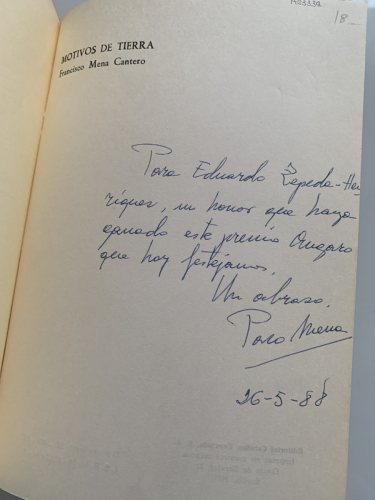 18-
MOTIVOS DE TIERRA
Francisco Mena Cantero
Para Eduardo Zepeda-Hen
ríquez, un honor que haya
ganado este premio Ángaro
que hoy festejamos.
Un abrazo,
Paco Mena
26-5-88